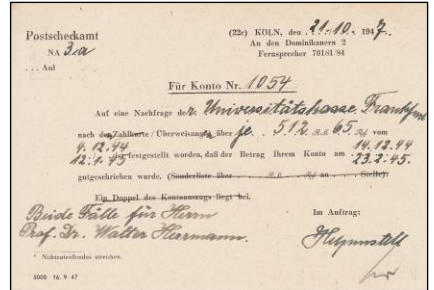 Postscheckamt
(22c) KÖLN, den 21.10. 1947.
NA 3a
An den Dominikanern 2
... Anl
Fernsprecher 70181/84
Für Konto Nr. 1054
Auf eine Nachfrage der Universitätskasse Frankfurt
nach den Zahlkarte / Überweisung über je 512 R.M. 65 Rpf vom
9.12.44 14.12.44
12.1.45 ist festgestellt worden, daß der Betrag Ihrem Konto am 23.2.45.
gutgeschrieben warde. (Sonderliste über R.M. Rpf an Stelle).
Ein Doppel des Kontoauszugs liegt bei.
Beide Fälle für Herrn
Im Auftrag:
Prof. Dr. Walter Herrmann.
* Nichtzutreffendes streichen.
5000 16. 9 47